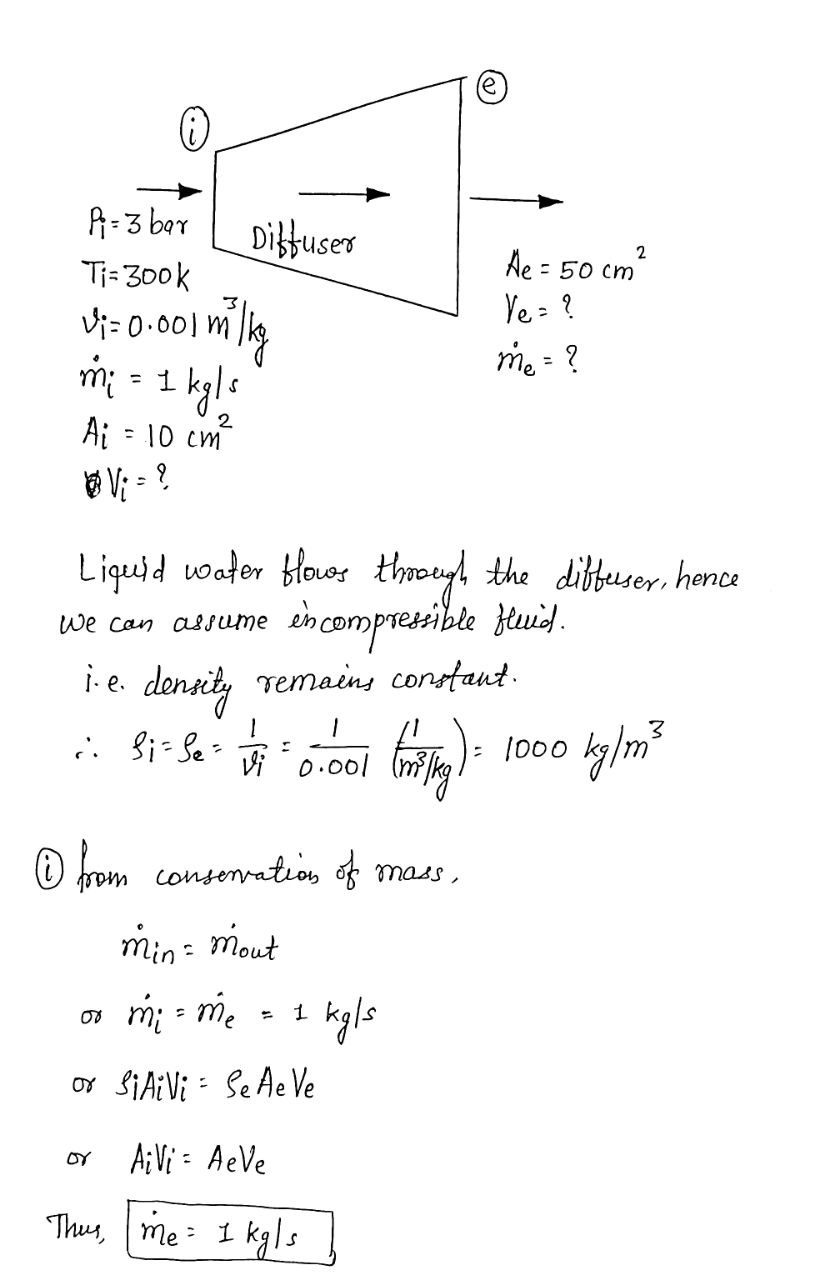 ⓘ
ⓔ
Pi = 3 bar
Ti = 300k
vi = 0.001 m³/kg
ṁi = 1 kg/s
Ai = 10 cm²
Vi = ?
Diffuser
Ae = 50 cm²
Ve = ?
ṁe = ?
Liquid water flows through the diffuser, hence
we can assume incompressible fluid.
i.e. density remains constant.
∴ ρi = ρe = 1/vi = 1/0.001 (1/m³/kg) = 1000 kg/m³
ⓘ from conservation of mass,
ṁin = ṁout
or ṁi = ṁe = 1 kg/s
or ρiAiVi = ρeAeVe
or AiVi = AeVe
Thus, ṁe = 1 kg/s